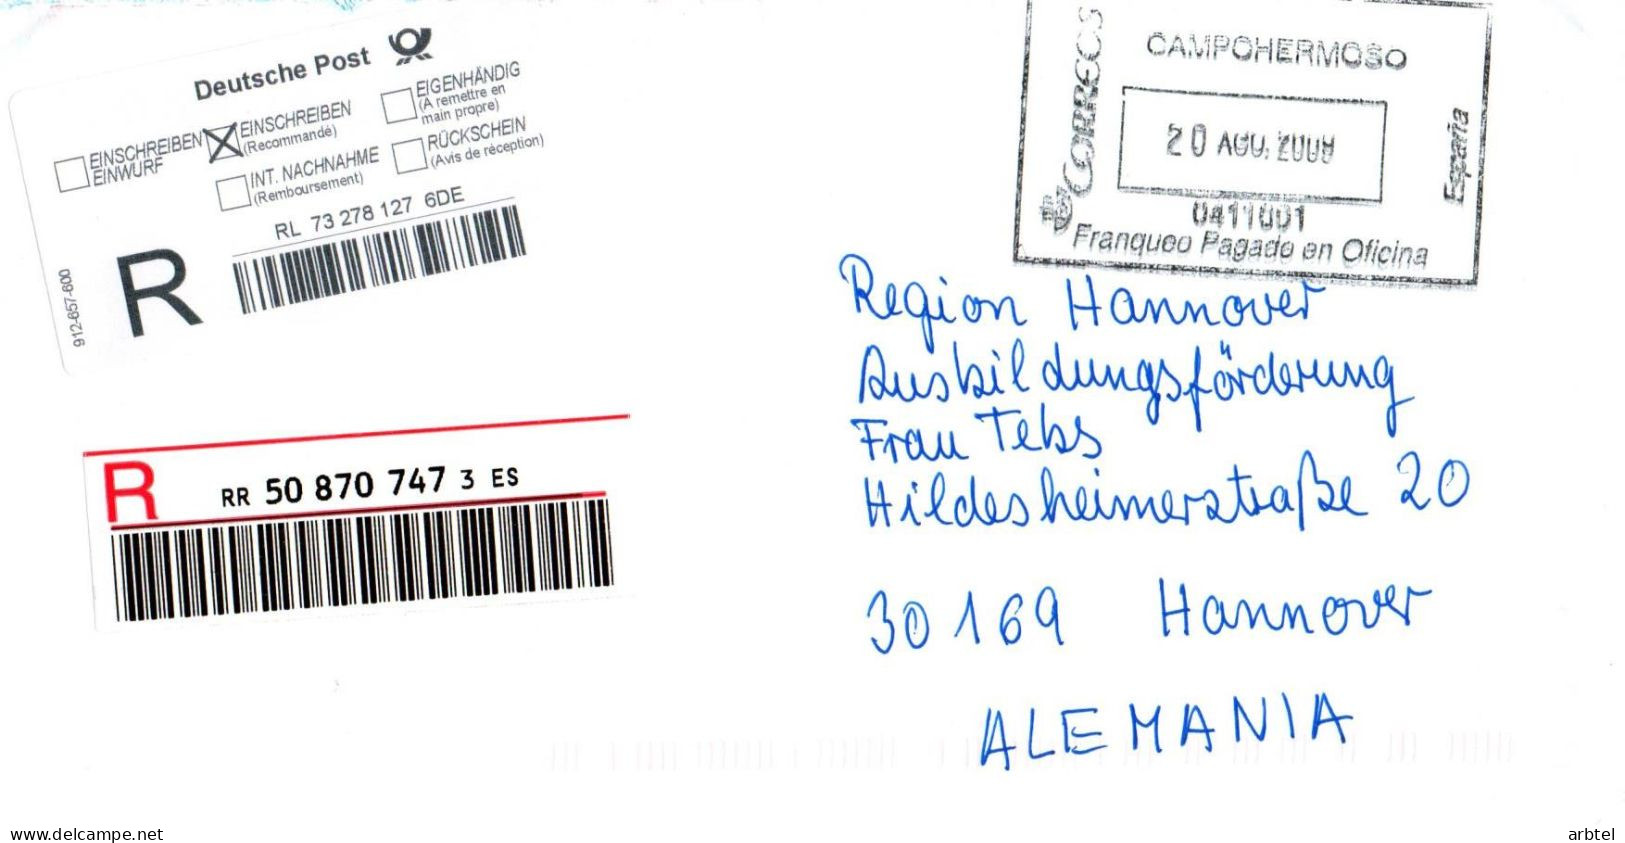 Deutsche Post
EINSCHREIBEN
EINWURF
EINSCHREIBEN
(Recommandé)
EIGENHÄNDIG
(A remettre en
main propre)
INT. NACHNAHME
(Remboursement)
RÜCKSCHEIN
(Avis de réception)
RL 73 278 127 6DE
R
912-657-600
R
RR 50 870 747 3 ES
CORREOS
CAMPOHERMOSO
20 AGO. 2009
0411001
Franqueo Pagado en Oficina
España
Region Hannover
Ausbildungsförderung
Frau Tebs
Hildesheimerstraße 20
30169 Hannover
ALEMANIA
www.delcampe.net
arbtel